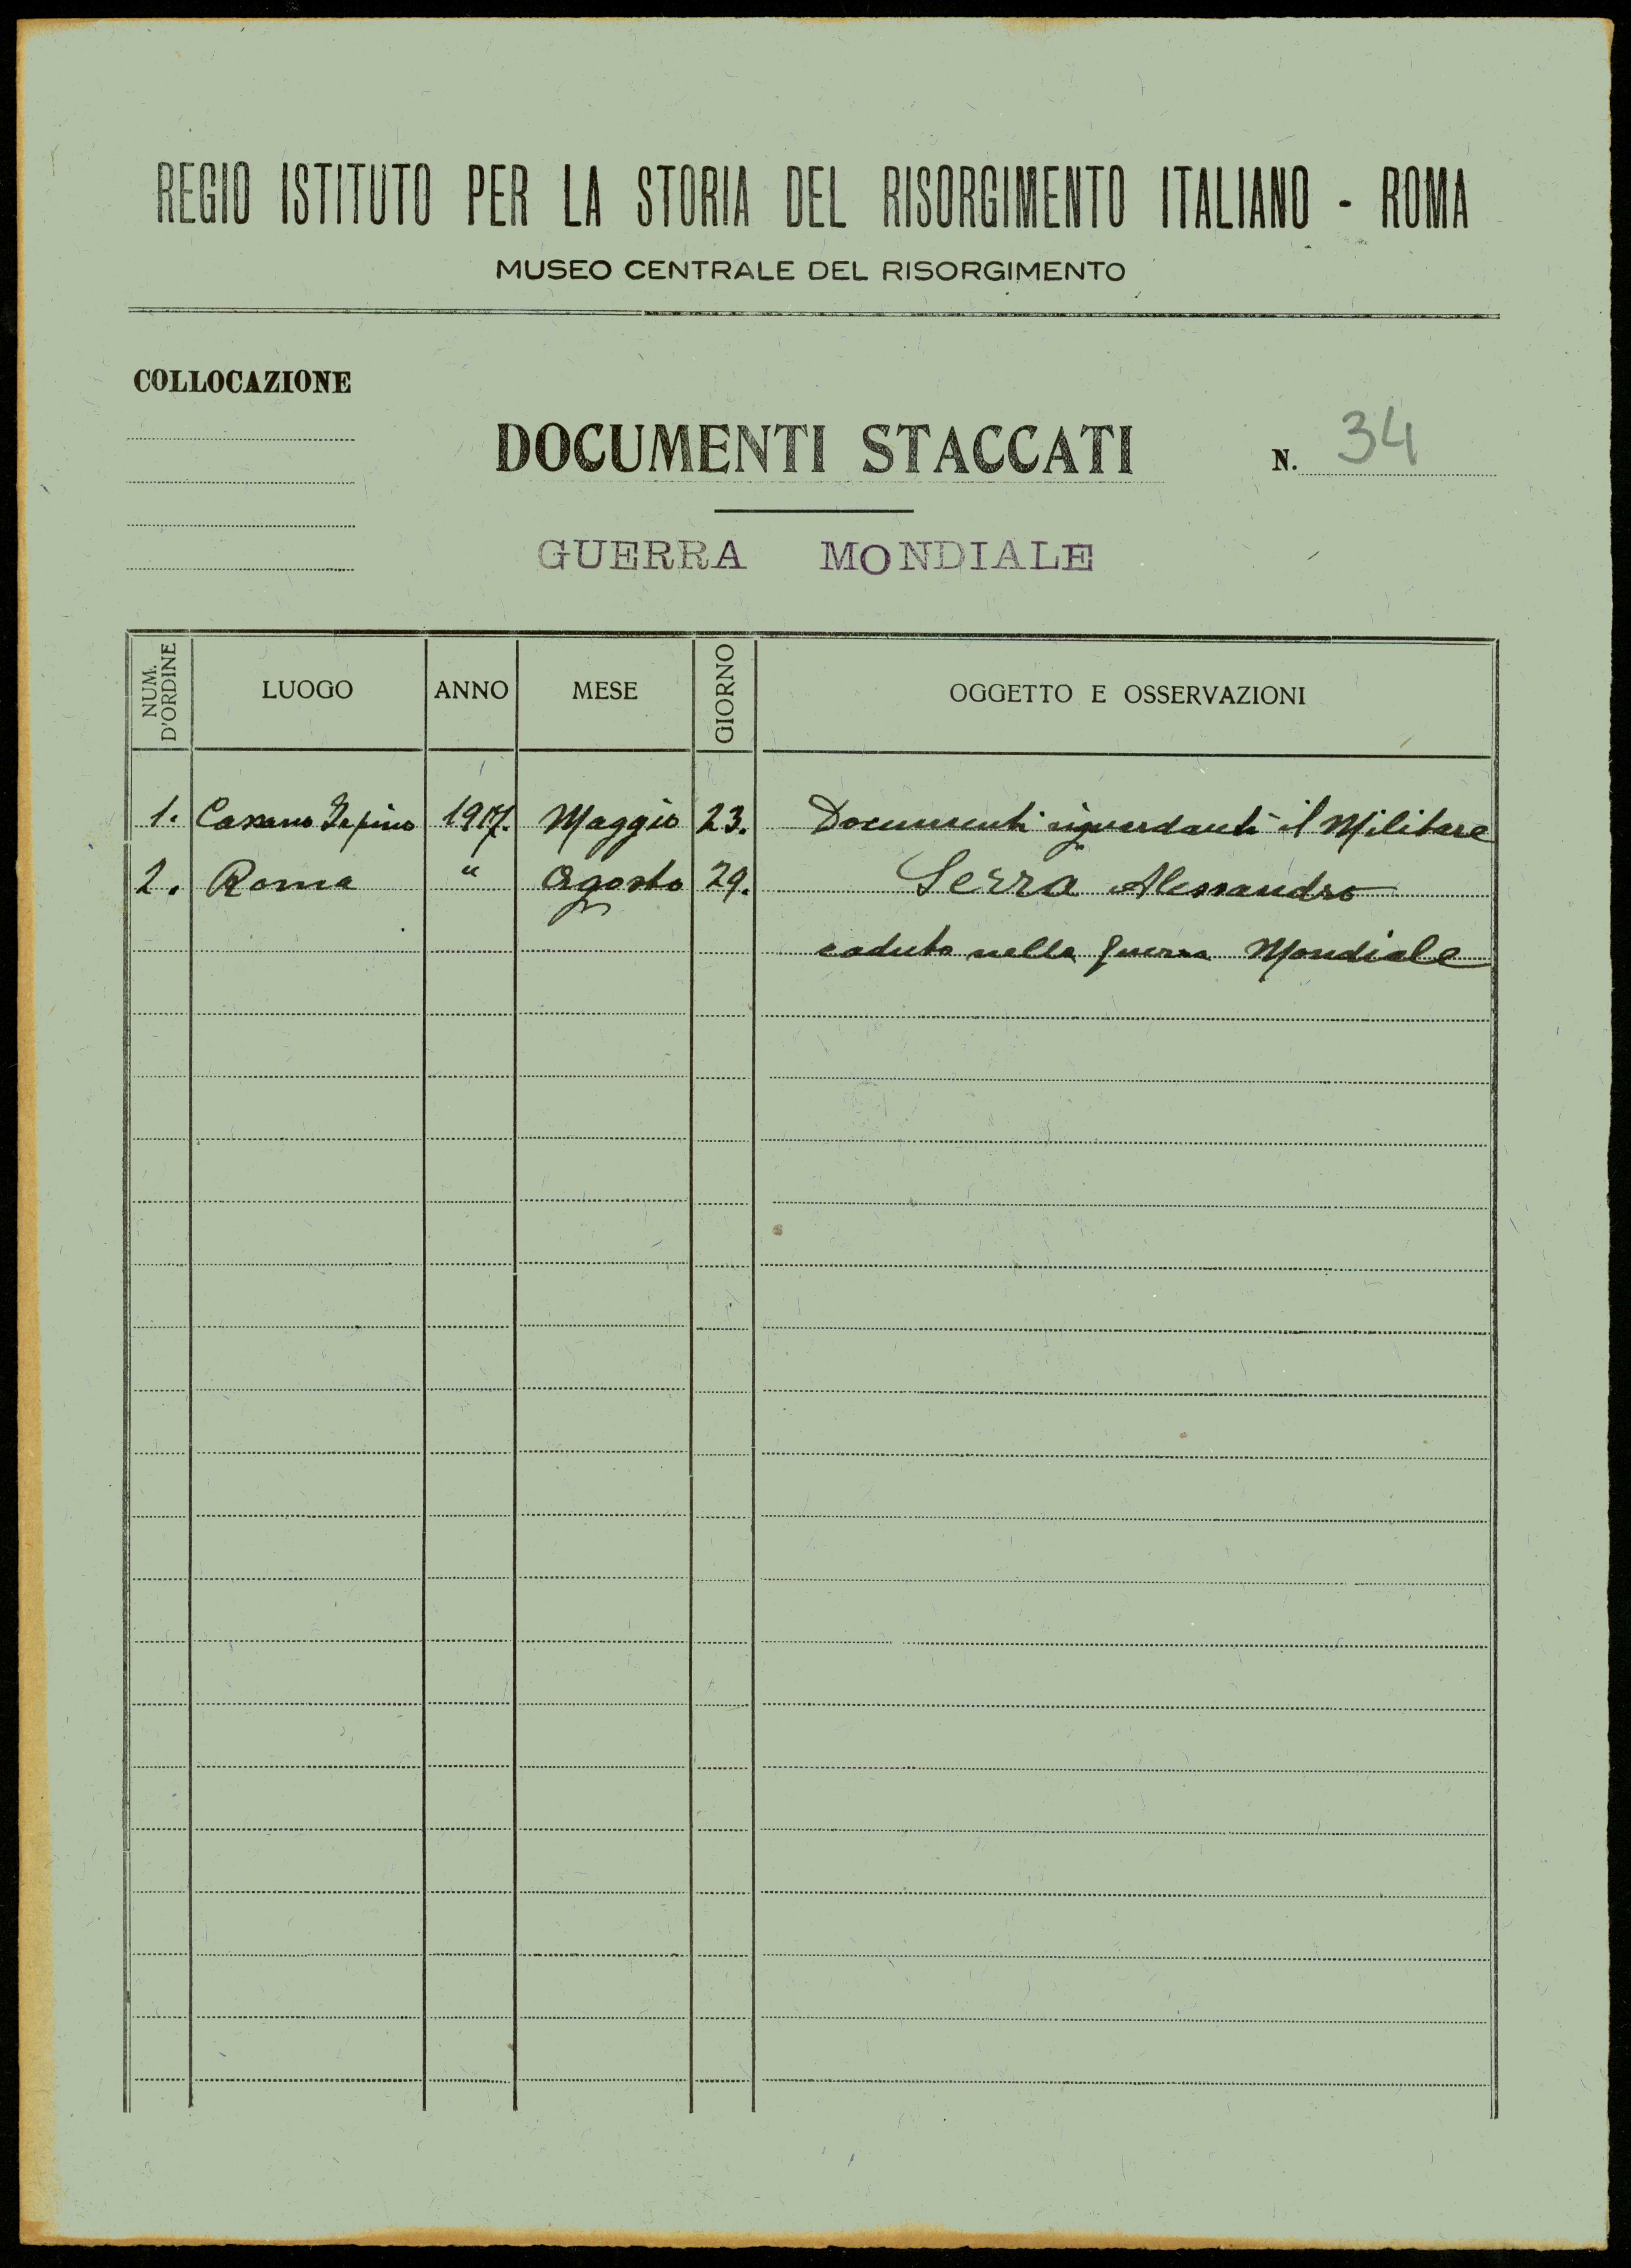 REGIO ISTITUTO PER LA STORIA DEL RISORGIMENTO ITALIANO - ROMA
MUSEO CENTRALE DEL RISORGIMENTO
COLLOCAZIONE
DOCUMENTI STACCATI
N. 34
GUERRA MONDIALE
NUM. D'ORDINE LUOGO ANNO MESE GIORNO OGGETTO E OSSERVAZIONI
1. 1917. Maggio 23. Documenti riguardanti il Militare
2. Roma " Agosto 29. Serra Alessandro
caduto nella guerra Mondiale